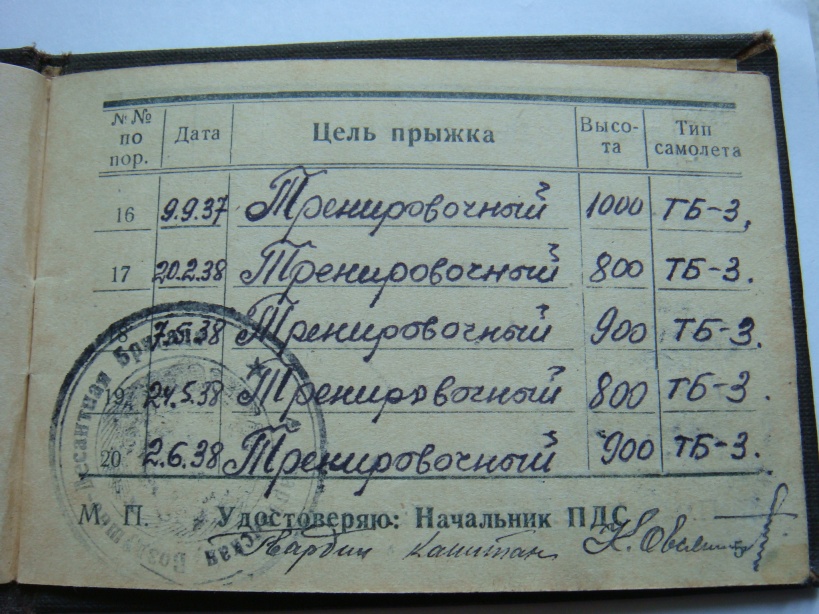 №№ по пор. Дата Цель прыжка Высо-та Тип самолета
16 9.9.37 Тренировочный 1000 ТБ-3.
17 20.2.38 Тренировочный 800 ТБ-3.
7.5.38 Тренировочный 900 ТБ-3.
19 24.5.38 Тренировочный 800 ТБ-3.
20 2.6.38 Тренировочный 900 ТБ-3.
М. П. Удостоверяю: Начальник ПДС
капитан
Десантная Бригада